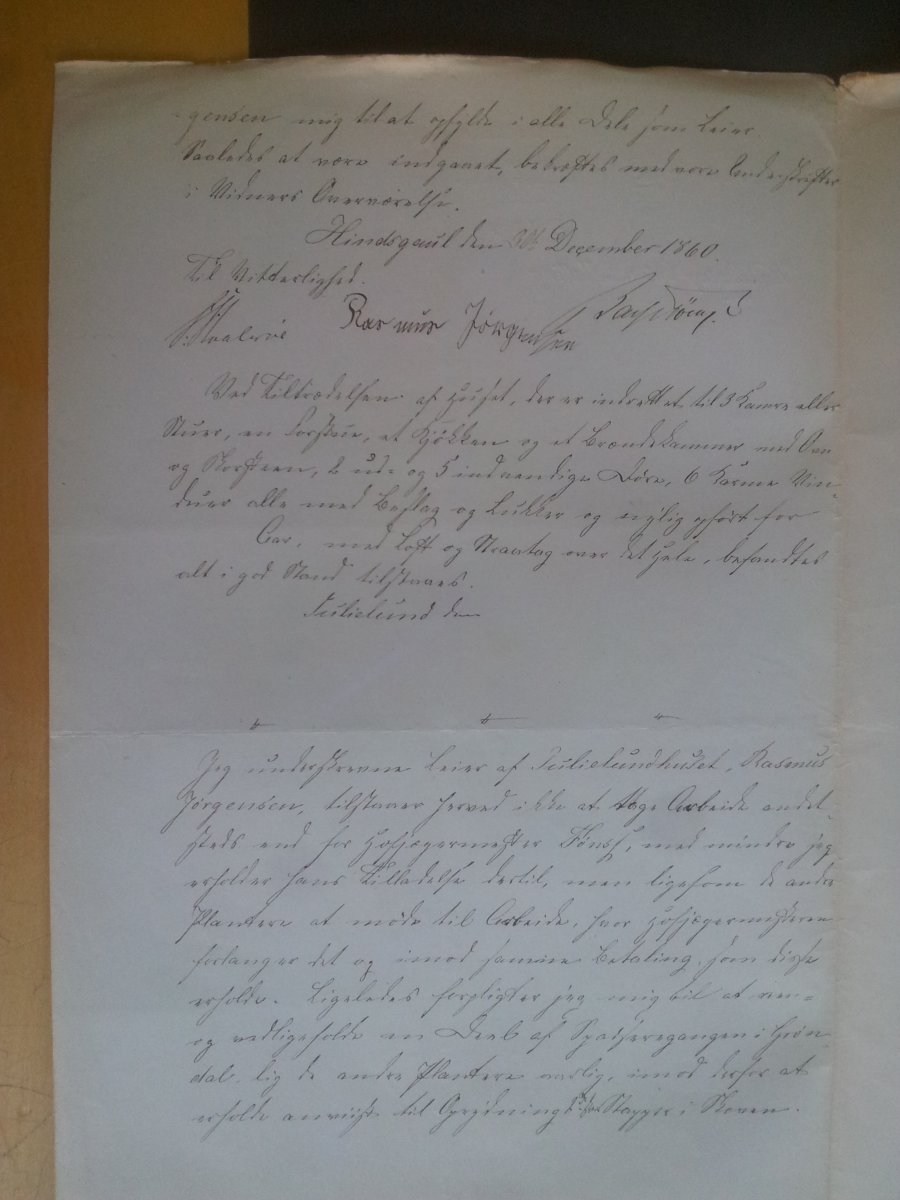 gensen mig til at opfylde i alle Dele som Leier
Saaledes at være indgaaet, bekræftes med vore Underskrifter
i Vidners Overværelse.
Hindsgaul den December 1860.
Til Vitterlighed.
Rasmus Jörgensen
Ved Tiltrædelsen af Huset, der er indrettet til 3 Kamre eller
Stuer, en Forstue, et Kjøkken og et Brændekammer med Ovn
og Skorsteen, 2 ud- og 5 indvendige Døre, 6 Karme Vin-
duer alle med Beslag og Lukker og nylig opført for
Aar, med Loft og Straatag over det Hele, befandtes
alt i god Stand tilstaaes.
Julielund den
Jeg underskrevne Leier af Julielundhuset, Rasmus
Jörgensen, tilstaaer herved ikke at tage Arbeide andet-
steds end for Hofjægermester Fønss, med mindre jeg
erholder hans Tilladelse dertil, men ligesom de andre
Plantere at møde til Arbeide, hvor Hofjægermesteren
forlanger det og imod samme Betaling, som disse
erholde. Ligeledes forpligter jeg mig til at ren-
og vedligeholde en Deel af Spadseregangen i Grøn
dal, lig de andre Plantere aarlig, imod derfor at
erholde anviist til Oprydning Stykker i Skoven.